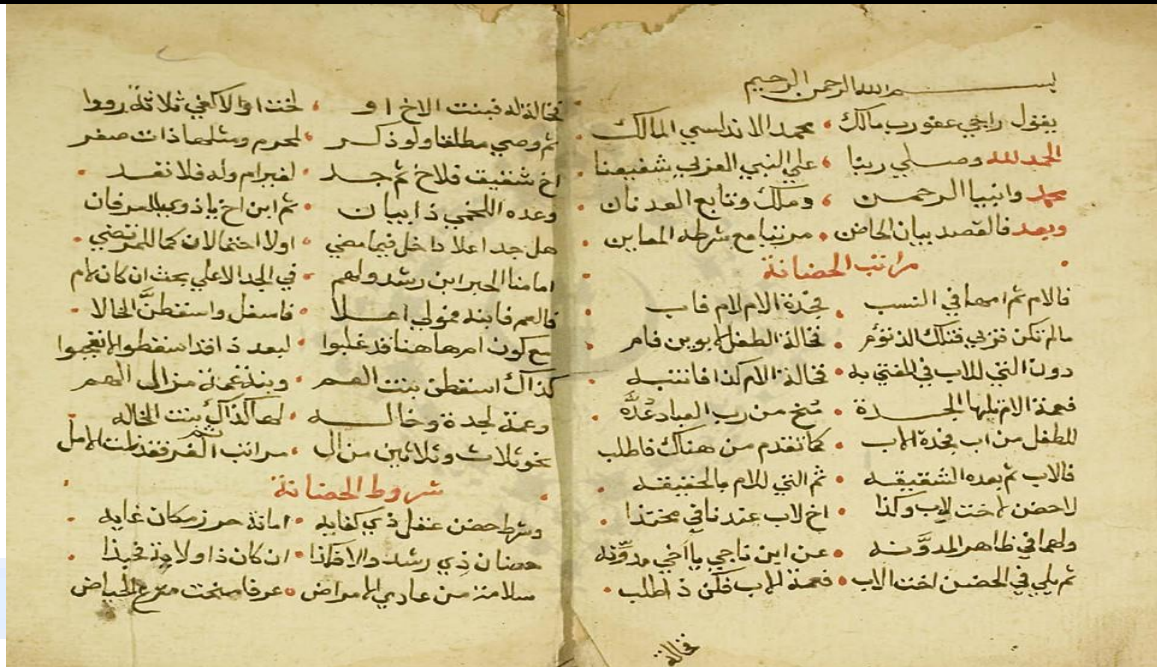 بسم الله الرحمن الرحيم
يقول راجي عفو رب مالك • محمد الاندلسي المالك
الحمد لله وصلى ربنا • على النبي العربي شفيعنا
محمد وانبيا الرحمن • وملك وتابع العدنان
وبعد فالقصد بيان الحاضن • مرتبا مع شرطه المعاين
مراتب الحضانة
فالام ثم امها في النسب • فجدة الام لام فاب
مالم تكن قربى فتلك الذ تؤم • فخالة الطفل لابوين فام
دون التي للاب في المفتي به • فخالة الام كذا فانتبه
فعمة الام تليها الجدة • منح من رب العباد عُدَّه
للطفل من اب فجدة لاب • كما تقدم من هناك فاطلب
فالاب ثم بعده الشقيقه • ثم التي للام بالحقيقه
لاحضن لاخت لاب وكذا • اخ لاب عندنا في محتذا
ولهما في ظاهر المدونه • عن ابن ناجي يا أخي مدونه
ثم يلي في الحضن اخت الاب • فعمة لاب فكن ذ اطلب
فخالة
فخالة له فبنت الاخ او • لخت او الاكفى ثلاثة رووا
ثم وصي مطلقا ولو ذكر • لمحرم ومثلها ذات صغر
اخ شقيق فلاخ ثم جد • لغير ام وله فلا تقد
وعده اللخمي ذا بيان • ثم ابن اخ ياذوي العرفان
هل جد اعلا داخل فيما مضي • اولا احتمالان كما للمرتضي
امامنا الحبر ابن رشد ولهم • في الجد الاعلي بحث ان كان لام
فالعم فابنه فمولي اعلا • فاسفل واسقطن الخالا
مع كون امرها هنا قد غلبوا • لبعد ذا قد اسقطوا
كذاك اسقطن بنت العم • وبنت عمة من ال العم
وعمة لجدة وخاله • لها كذاك بنت الخاله
نحو ثلاث وثلاثين من ال • مراتب الغر فقد نلت الامل
شروط الحضانة
وشرط حضن عقل ذي كفايه • امانة حرز مكان غايه
حضان ذي رشد والا فكذا • ان كان ذا ولاية فخذا
سلامة من عادي الامراض • عرفا